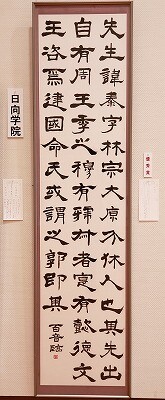 先生諱泰字林宗大原介休人也其先出
自有周王季之穆有虢叔者寔有懿德文
王咨焉建國命氏或謂之郭即其 百音臨
日向学院
優秀賞